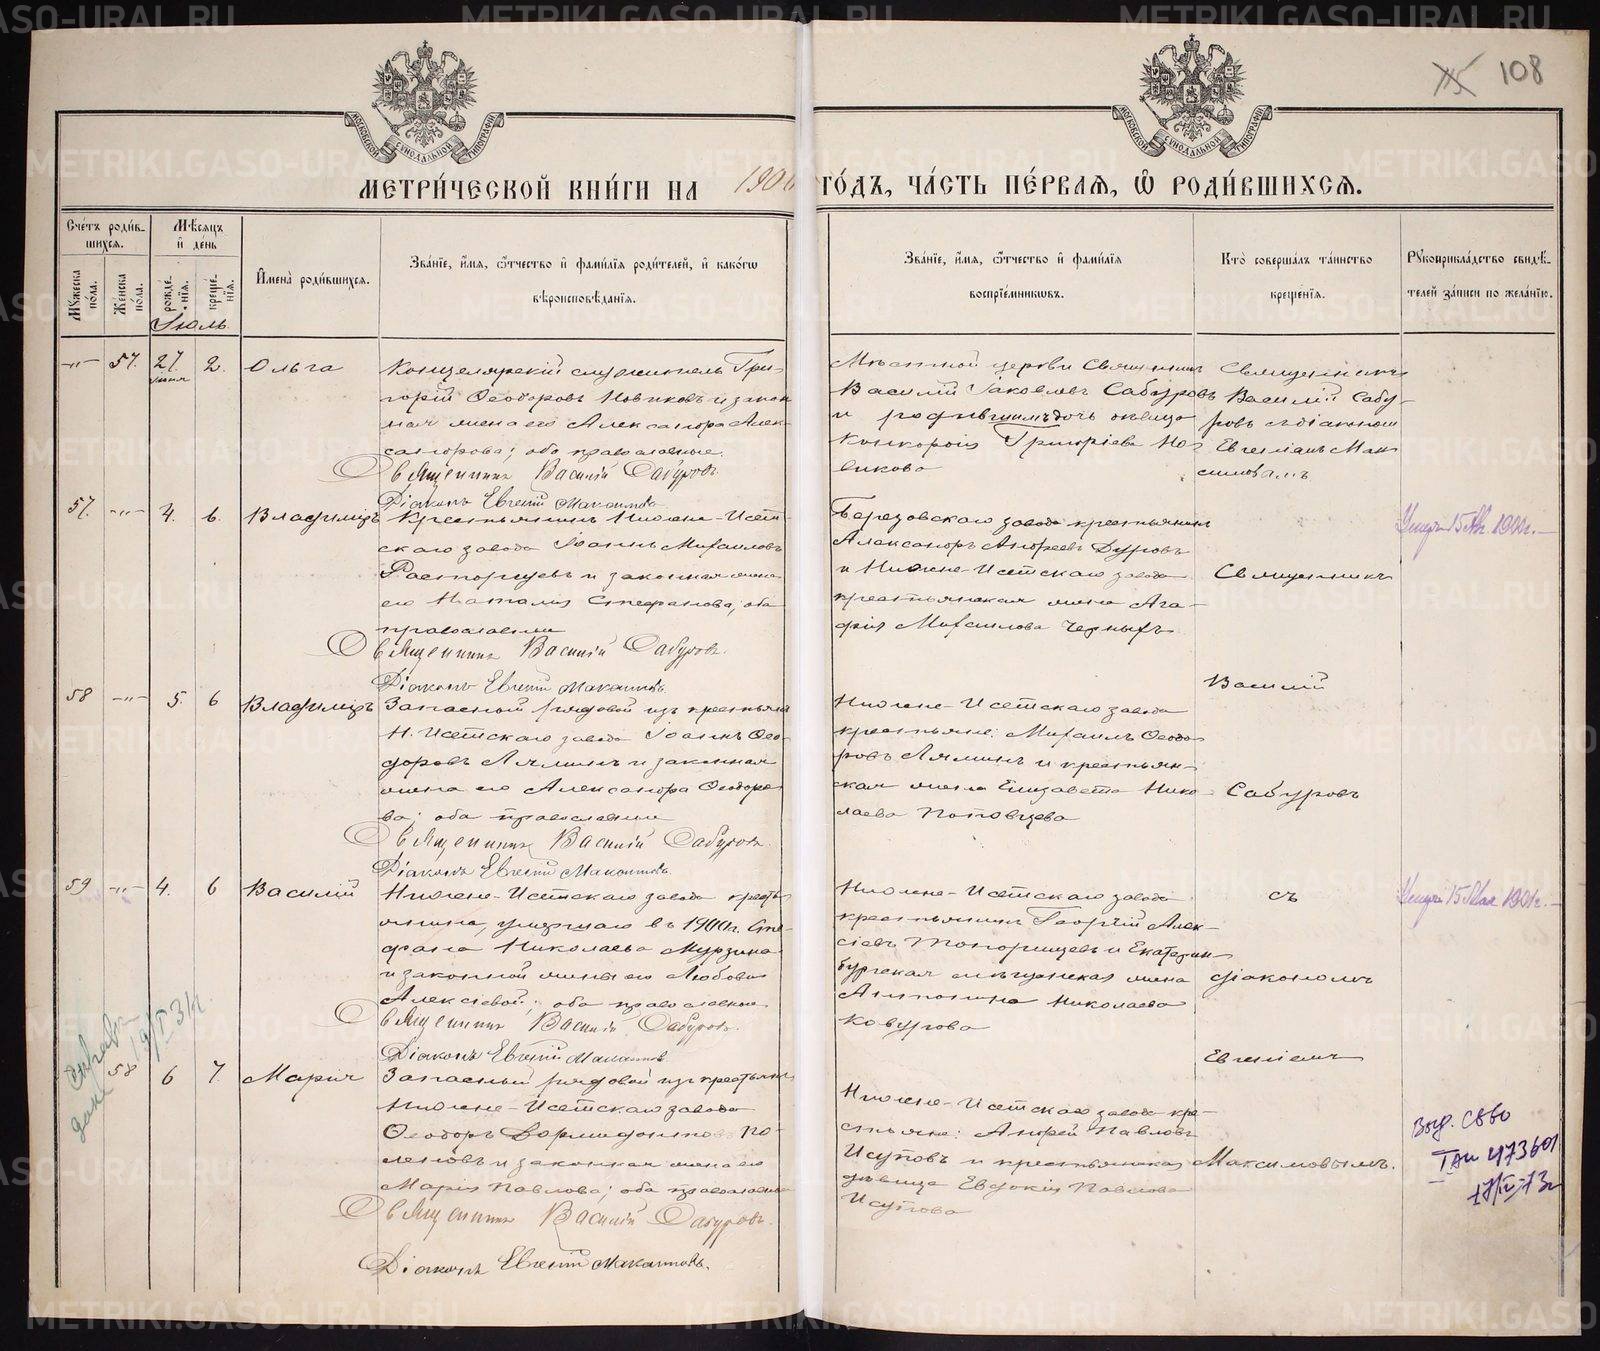 108
МОСКОВСКОЙ СУНОДАЛЬНОЙ ТИПОГРАФІИ
МОСКОВСКОЙ СУНОДАЛЬНОЙ ТИПОГРАФІИ
МЕТРИ́ЧЕСКОЙ КНИ́ГИ НА 1900 ГО́ДЪ, ЧА́СТЬ ПЕ́РВАЯ, Ѡ҆ РОДИ́ВШИХСЯ.
Сче́тъ роди́вшихся.
Мѣ́сяцъ и҆ де́нь
Мꙋ́жеска по́ла.
Же́нска по́ла.
рожде́нія.
креще́нія.
И҆мена̀ роди́вшихся.
Зва́ніе, и҆́мя, ѻ҆́тчество и҆ фами́лія роди́телей, и҆ како́гѡ
вѣроисповѣ́данія.
Зва́ніе, и҆́мя, ѻ҆́тчество и҆ фами́лія
воспріе́мникѡвъ.
Кто̀ соверша́лъ та́инство
креще́нія.
Рꙋкоприкла́дство свидѣ́-
телей за́писи по жела́нію.
Іюль
-"- 57. 27. Іюня 2. Ольга
Канцелярскій служитель Гри-
горій Ѳеодоровъ Новиковъ и закон
ная жена его Александра Алек-
сандрова; оба православные.
Священникъ Василій Сабуровъ
Діаконъ Евгеній Максимовъ
Мѣстной церкви Священникъ
Василій Іаковлевъ Сабуровъ
и родившимъ дочь дѣвица
Конкордія Григоріева Но-
викова
Священникъ
Василій Сабу-
ровъ съ діакономъ
Евгеніемъ Мак
симовымъ
57. -"- 4. 6. Владиміръ
Крестьянинъ Нижне-Исет-
скаго завода Іоаннъ Михаиловъ
Расторгуевъ и законная жена
его Наталія Стефанова; оба
православные
Священникъ Василій Сабуровъ.
Діаконъ Евгеній Максимовъ.
Березовскаго завода крестьянинъ
Александръ Андреевъ Дуровъ
и Нижне-Исетскаго завода
крестьянская жена Ага-
фія Михаилова Черныхъ
Священникъ
Василій
58 -"- 5. 6 Владиміръ
Запасный рядовой изъ крестьянъ
Н. Исетскаго завода Іоаннъ Ѳео-
доровъ Ляминъ и законная
жена его Александра Ѳеодоро
ва; оба православные
Священникъ Василій Сабуровъ.
Діаконъ Евгеній Максимовъ.
Нижне-Исетскаго завода
крестьяне: Михаилъ Ѳеодо
ровъ Ляминъ и крестьян-
ская жена Елизавета Нико
лаева Половцева
Сабуровъ
59 -"- 4. 6 Василій
Нижне-Исетскаго завода кресть
янина, умершаго въ 1900 г. Сте-
фана Николаева Мурзина
и законной жены его Любови
Алексѣевой; оба православные
Священникъ Василій Сабуровъ.
Діаконъ Евгеній Максимовъ
Нижне-Исетскаго завода
крестьянинъ Георгій Алек-
сѣевъ Топорищевъ и Екатерин
бургская мѣщанская жена
Антонина Николаева
съ
діакономъ
Евгеніемъ
58 6 7. Марія
Запасный рядовой изъ крестьянъ
Нижне-Исетскаго завода
Ѳеодоръ Дормидонтовъ По-
леновъ и законная жена его
Марія Павлова; оба православные
Священникъ Василій Сабуровъ.
Діаконъ Евгеній Максимовъ.
Нижне-Исетскаго завода кре-
стьяне: Андрей Павловъ
Исуповъ и крестьянская
дѣвица Евдокія Павлова
Исупова
Максимовымъ.
METRIKI.GASO-URAL.RU